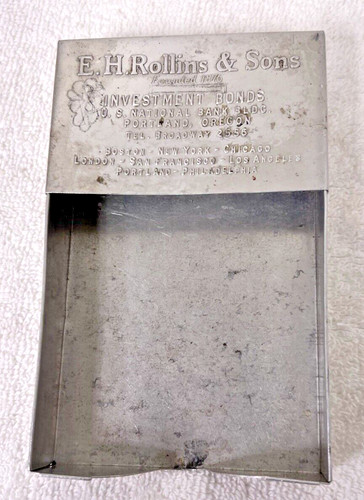 E.H.Rollins & Sons
Founded 1876
INVESTMENT BONDS
U.S. NATIONAL BANK BLDG.
PORTLAND, OREGON
TEL. BROADWAY 2555
BOSTON - NEW YORK - CHICAGO
LONDON - SAN FRANCISCO - LOS ANGELES
PORTLAND - PHILADELPHIA